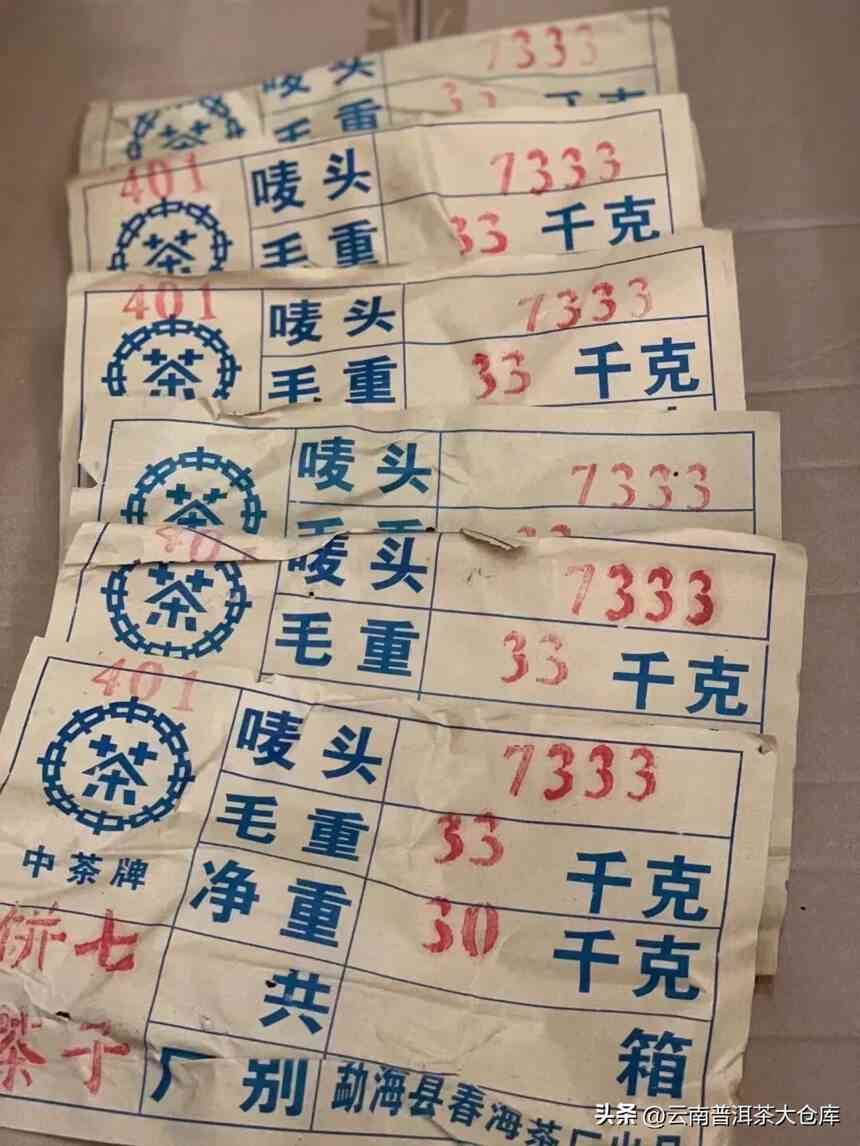 唛头 7333
毛重 33 千克
401
唛头 7333
毛重 33 千克
茶
401
唛头 7333
毛重 33 千克
茶
唛头 7333
茶
401
唛头 7333
毛重 33 千克
茶
401
唛头 7333
毛重 33 千克
茶
中茶牌
净重 30 千克
饼七
共 箱
茶子
厂别 勐海县春海茶厂出品
头条 @云南普洱茶大仓库